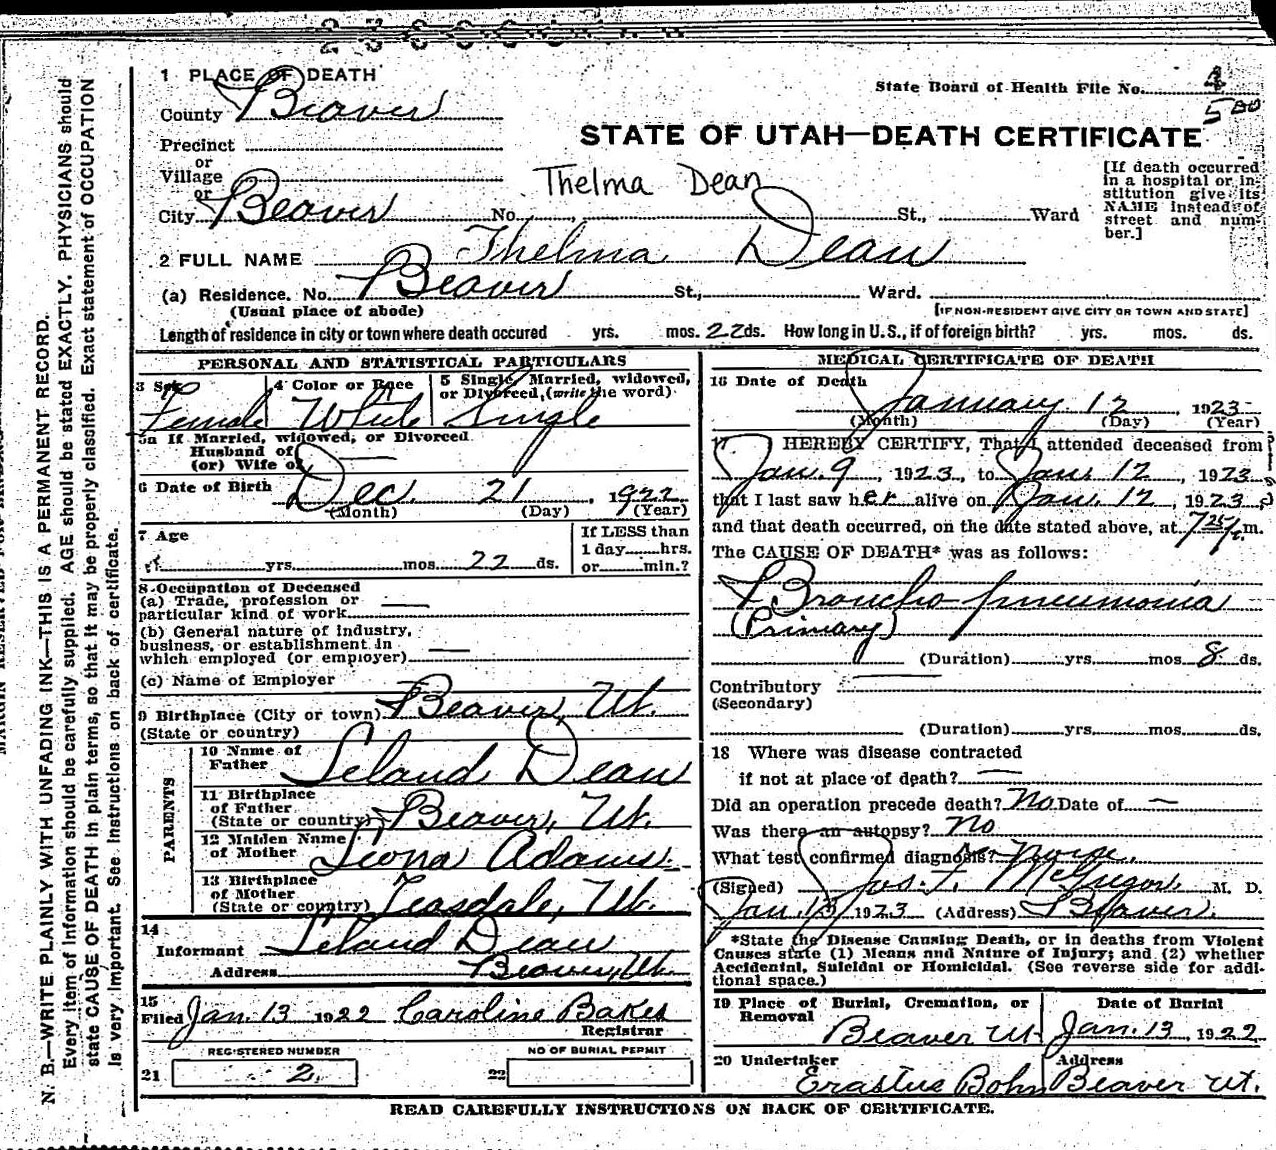 1 PLACE OF DEATH
State Board of Health File No.
County Beaver
500
STATE OF UTAH—DEATH CERTIFICATE
Precinct
or
Village
or
City Beaver No. St., Ward
Thelma Dean
[If death occurred
in a hospital or in-
stitution give its
NAME instead of
street and num-
ber.]
2 FULL NAME Thelma Dean
(a) Residence. No. Beaver St., Ward.
(Usual place of abode)
[IF NON-RESIDENT GIVE CITY OR TOWN AND STATE]
Length of residence in city or town where death occured yrs. mos. 22 ds. How long in U.S., if of foreign birth? yrs. mos. ds.
PERSONAL AND STATISTICAL PARTICULARS
3 Sex Female
4 Color or Race White
5 Single, Married, widowed,
or Divorced, (write the word)
Single
5a If Married, widowed, or Divorced
Husband of
(or) Wife of
6 Date of Birth Dec. 21, 1922
(Month) (Day) (Year)
7 Age
yrs. mos. 22 ds.
If LESS than
1 day hrs.
or min.?
8 Occupation of Deceased
(a) Trade, profession or
particular kind of work
(b) General nature of industry,
business, or establishment in
which employed (or employer)
(c) Name of Employer
9 Birthplace (City or town) Beaver, Ut.
(State or country)
PARENTS
10 Name of
Father Leland Dean
11 Birthplace
of Father
(State or country) Beaver, Ut.
12 Maiden Name
of Mother Leona Adams
13 Birthplace
of Mother
(State or country) Teasdale, Ut.
14
Informant Leland Dean
Address Beaver, Ut.
15
Filed Jan. 13 1922 Caroline Bakes
Registrar
REGISTERED NUMBER
21 2
NO OF BURIAL PERMIT
22
MEDICAL CERTIFICATE OF DEATH
16 Date of Death
January 12, 1923
(Month) (Day) (Year)
17 I HEREBY CERTIFY, That I attended deceased from
Jan. 9, 1923, to Jan. 12, 1923
that I last saw her alive on Jan. 12, 1923
and that death occurred, on the date stated above, at 725 P.m.
The CAUSE OF DEATH* was as follows:
Broncho pneumonia
(Primary)
(Duration) yrs. mos. 8 ds.
Contributory
(Secondary)
(Duration) yrs. mos. ds.
18 Where was disease contracted
if not at place of death? —
Did an operation precede death? No Date of —
Was there an autopsy? No
What test confirmed diagnosis?
(Signed) Jos. F. McGregor M. D.
Jan. 13 1923 (Address) Beaver.
*State the Disease Causing Death, or in deaths from Violent
Causes state (1) Means and Nature of Injury; and (2) whether
Accidental, Suicidal or Homicidal. (See reverse side for addi-
tional space.)
19 Place of Burial, Cremation, or
Removal
Beaver Ut
Date of Burial
Jan. 13, 1922
20 Undertaker
Erastus Bohn
Address
Beaver Ut.
READ CAREFULLY INSTRUCTIONS ON BACK OF CERTIFICATE.
N. B.—WRITE PLAINLY WITH UNFADING INK—THIS IS A PERMANENT RECORD.
Every item of information should be carefully supplied. AGE should be stated EXACTLY. PHYSICIANS should
state CAUSE OF DEATH in plain terms, so that it may be properly classified. Exact statement of OCCUPATION
is very important. See instructions on back of certificate.